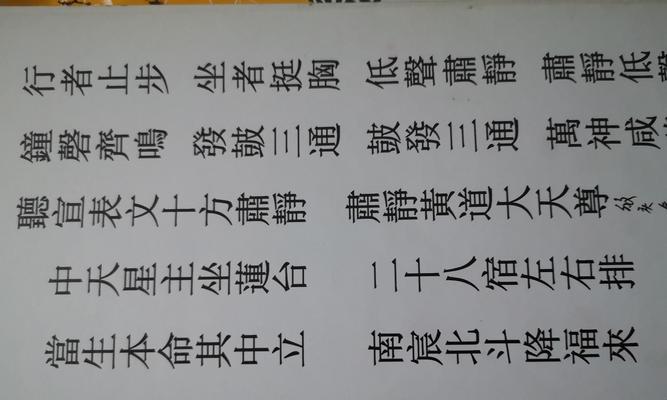 行者止步 坐者挺胸 低聲肅靜 肅靜低聲
鐘磬齊鳴 發皷三通 皷發三通 萬神咸
聽宣表文十方肅靜 肅靜黃道大天尊
中天星主坐蓮台 二十八宿左右排
當生本命其中立 南宸北斗降福來